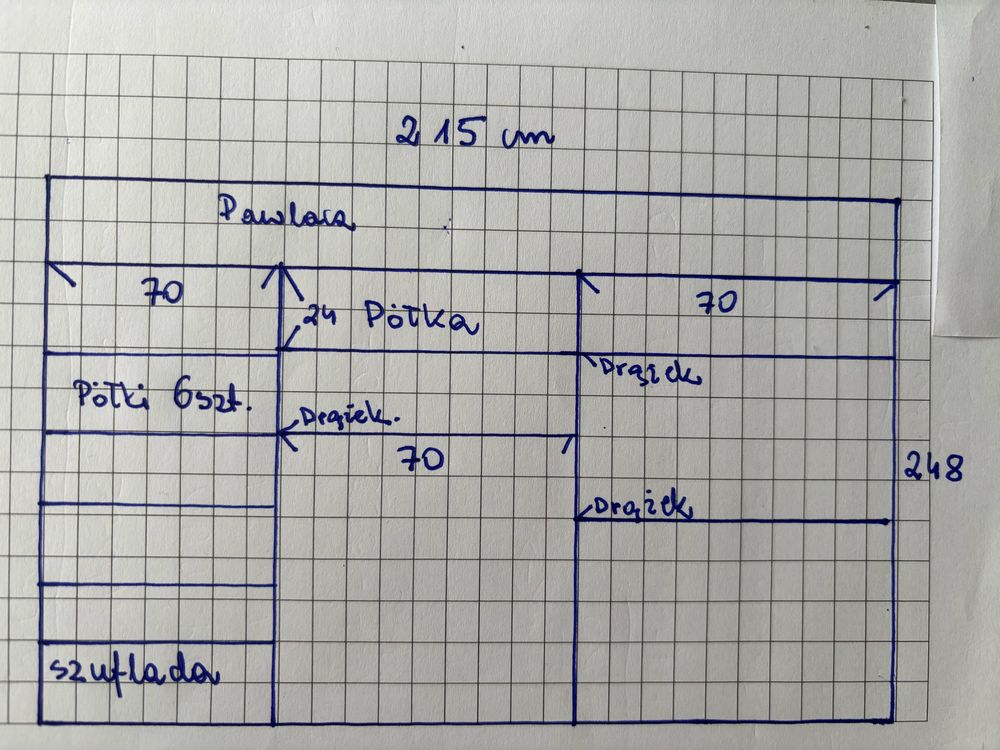 215 cm
Pawlacz
70
24 Półka
70
Drążek
Półki 6szt.
Drążek.
70
248
Drążek
szuflada